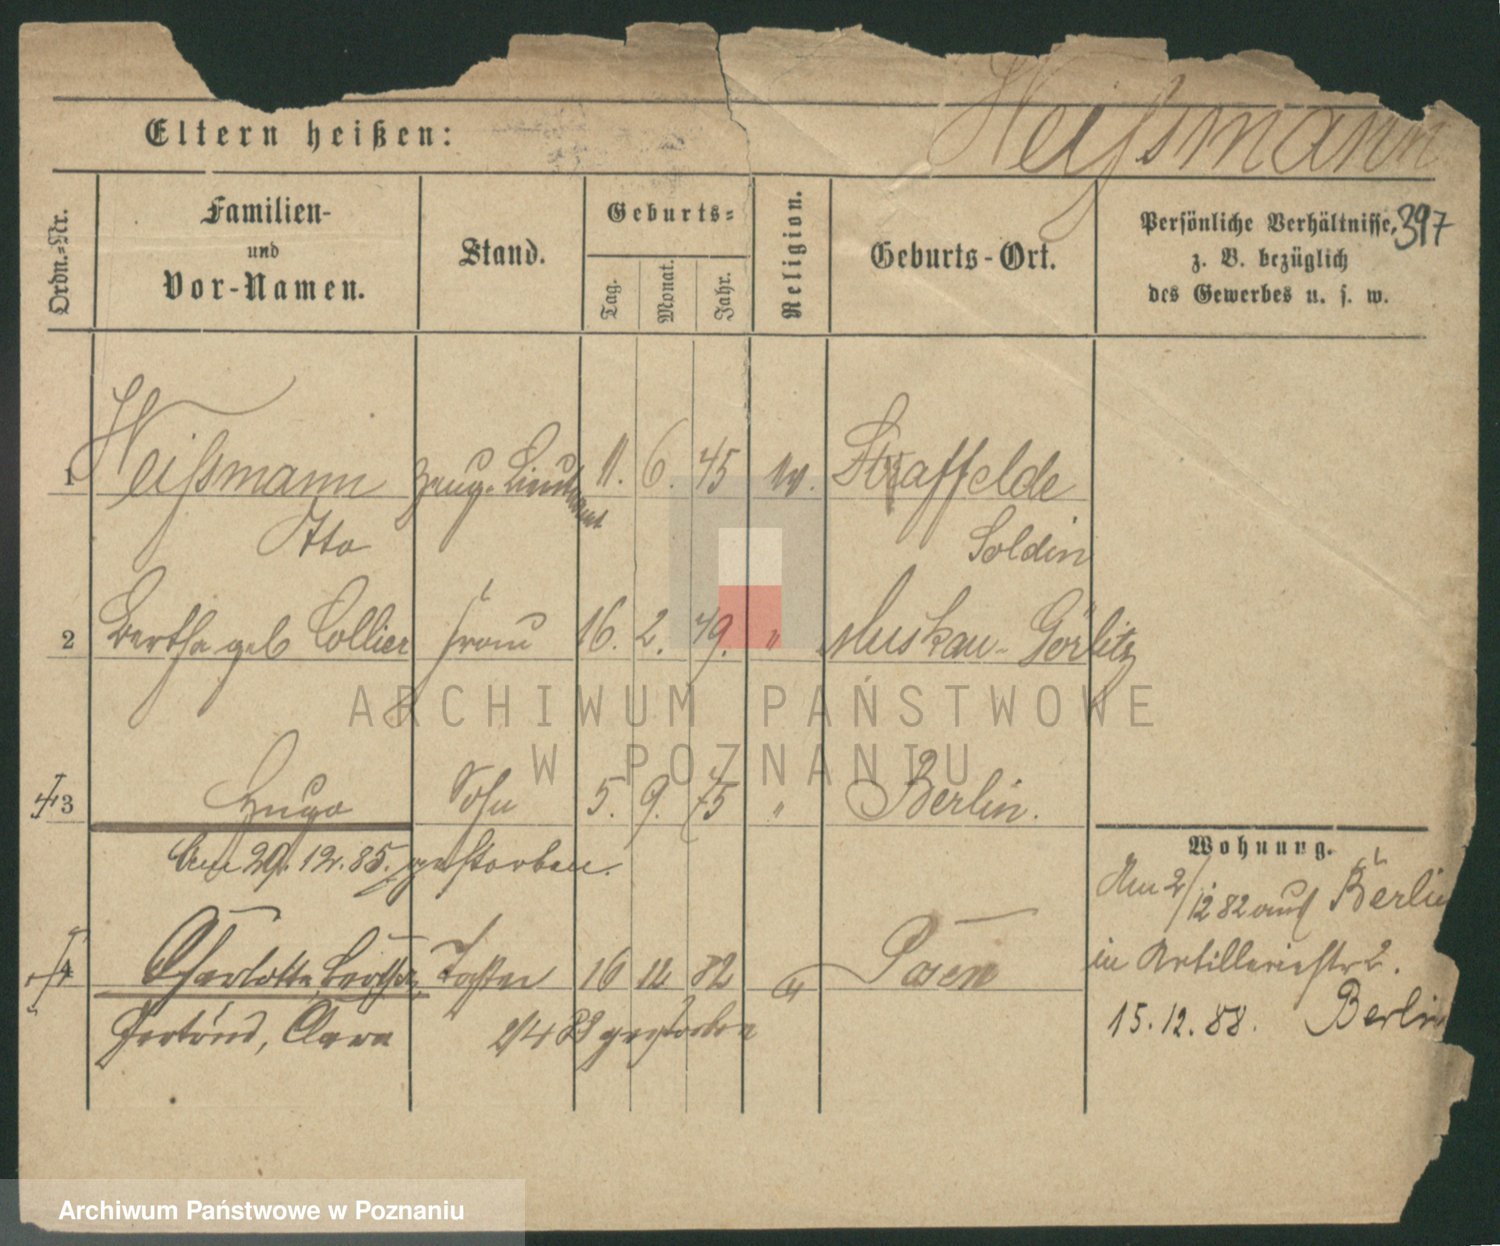 Weißmann
Eltern heißen:
Ordn.-Nr.
Familien-
und
Vor-Namen.
Stand.
Geburts-
Tag.
Monat.
Jahr.
Religion.
Geburts-Ort.
Persönliche Verhältnisse,
z. B. bezüglich
des Gewerbes u. s. w.
397
1 Weißmann Zeug-Lieutnant 11. 6. 45 Straffelde
Otto Soldin
2 Bertha geb Collier Frau 16. 2. 49. " Muskau-Görlitz
3 Hugo Sohn 5. 9. 75 " Berlin.
Am 29. 12. 85. gestorben.
Wohnung.
Am 2/12 82 auf Berlin
in Artilleriestr 2.
15. 12. 88. Berlin
4 Charlotte, Bertha, Tochter 16 12 82 " Posen
Gertrud, Clara gestorben
ARCHIWUM PAŃSTWOWE
W POZNANIU
Archiwum Państwowe w Poznaniu